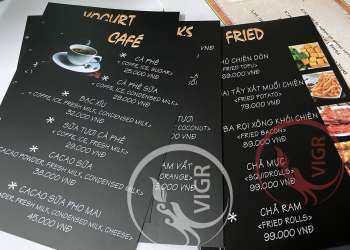 YOGURT
CAFÉ
CÀ PHÊ
<COFFEE, ICE, SUGAR>
25.000 VNĐ
CÀ PHÊ SỮA
<COFFE, ICE, CONDENSED MILK>
28.000 VNĐ
BẠC XỈU
<COFFE, ICE, FRESH MILK, CONDENSED MILK>
32.000 VNĐ
SỮA TƯƠI CÀ PHÊ
<COFFE, ICE, FRESH MILK, CONDENSED MILK>
CACAO SỮA
POWDER, FRESH MILK, CONDENSED MILK>
39.000 VNĐ
CACAO SỮA PHO MAI
POWDER, FRESH MILK, CONDENSED MILK, CHEESE>
45.000 VNĐ
KS
VNĐ
TƯƠI
COCONUT>
VNĐ
CAM VẮT
ORANGE>
VNĐ
FRIED
CHIÊN DÒN
<FRIED TOFU>
69.000 VNĐ
TÂY XÁT MUỐI CHIÊN
<FRIED POTATO>
79.000 VNĐ
BA RỌI XÔNG KHÓI CHIÊN
<FRIED BACON>
89.000 VNĐ
CHẢ MỰC
<SQUID ROLLS>
99.000 VNĐ
CHẢ RAM
<FRIED ROLLS>
99.000 VNĐ
VIGR
VIGR